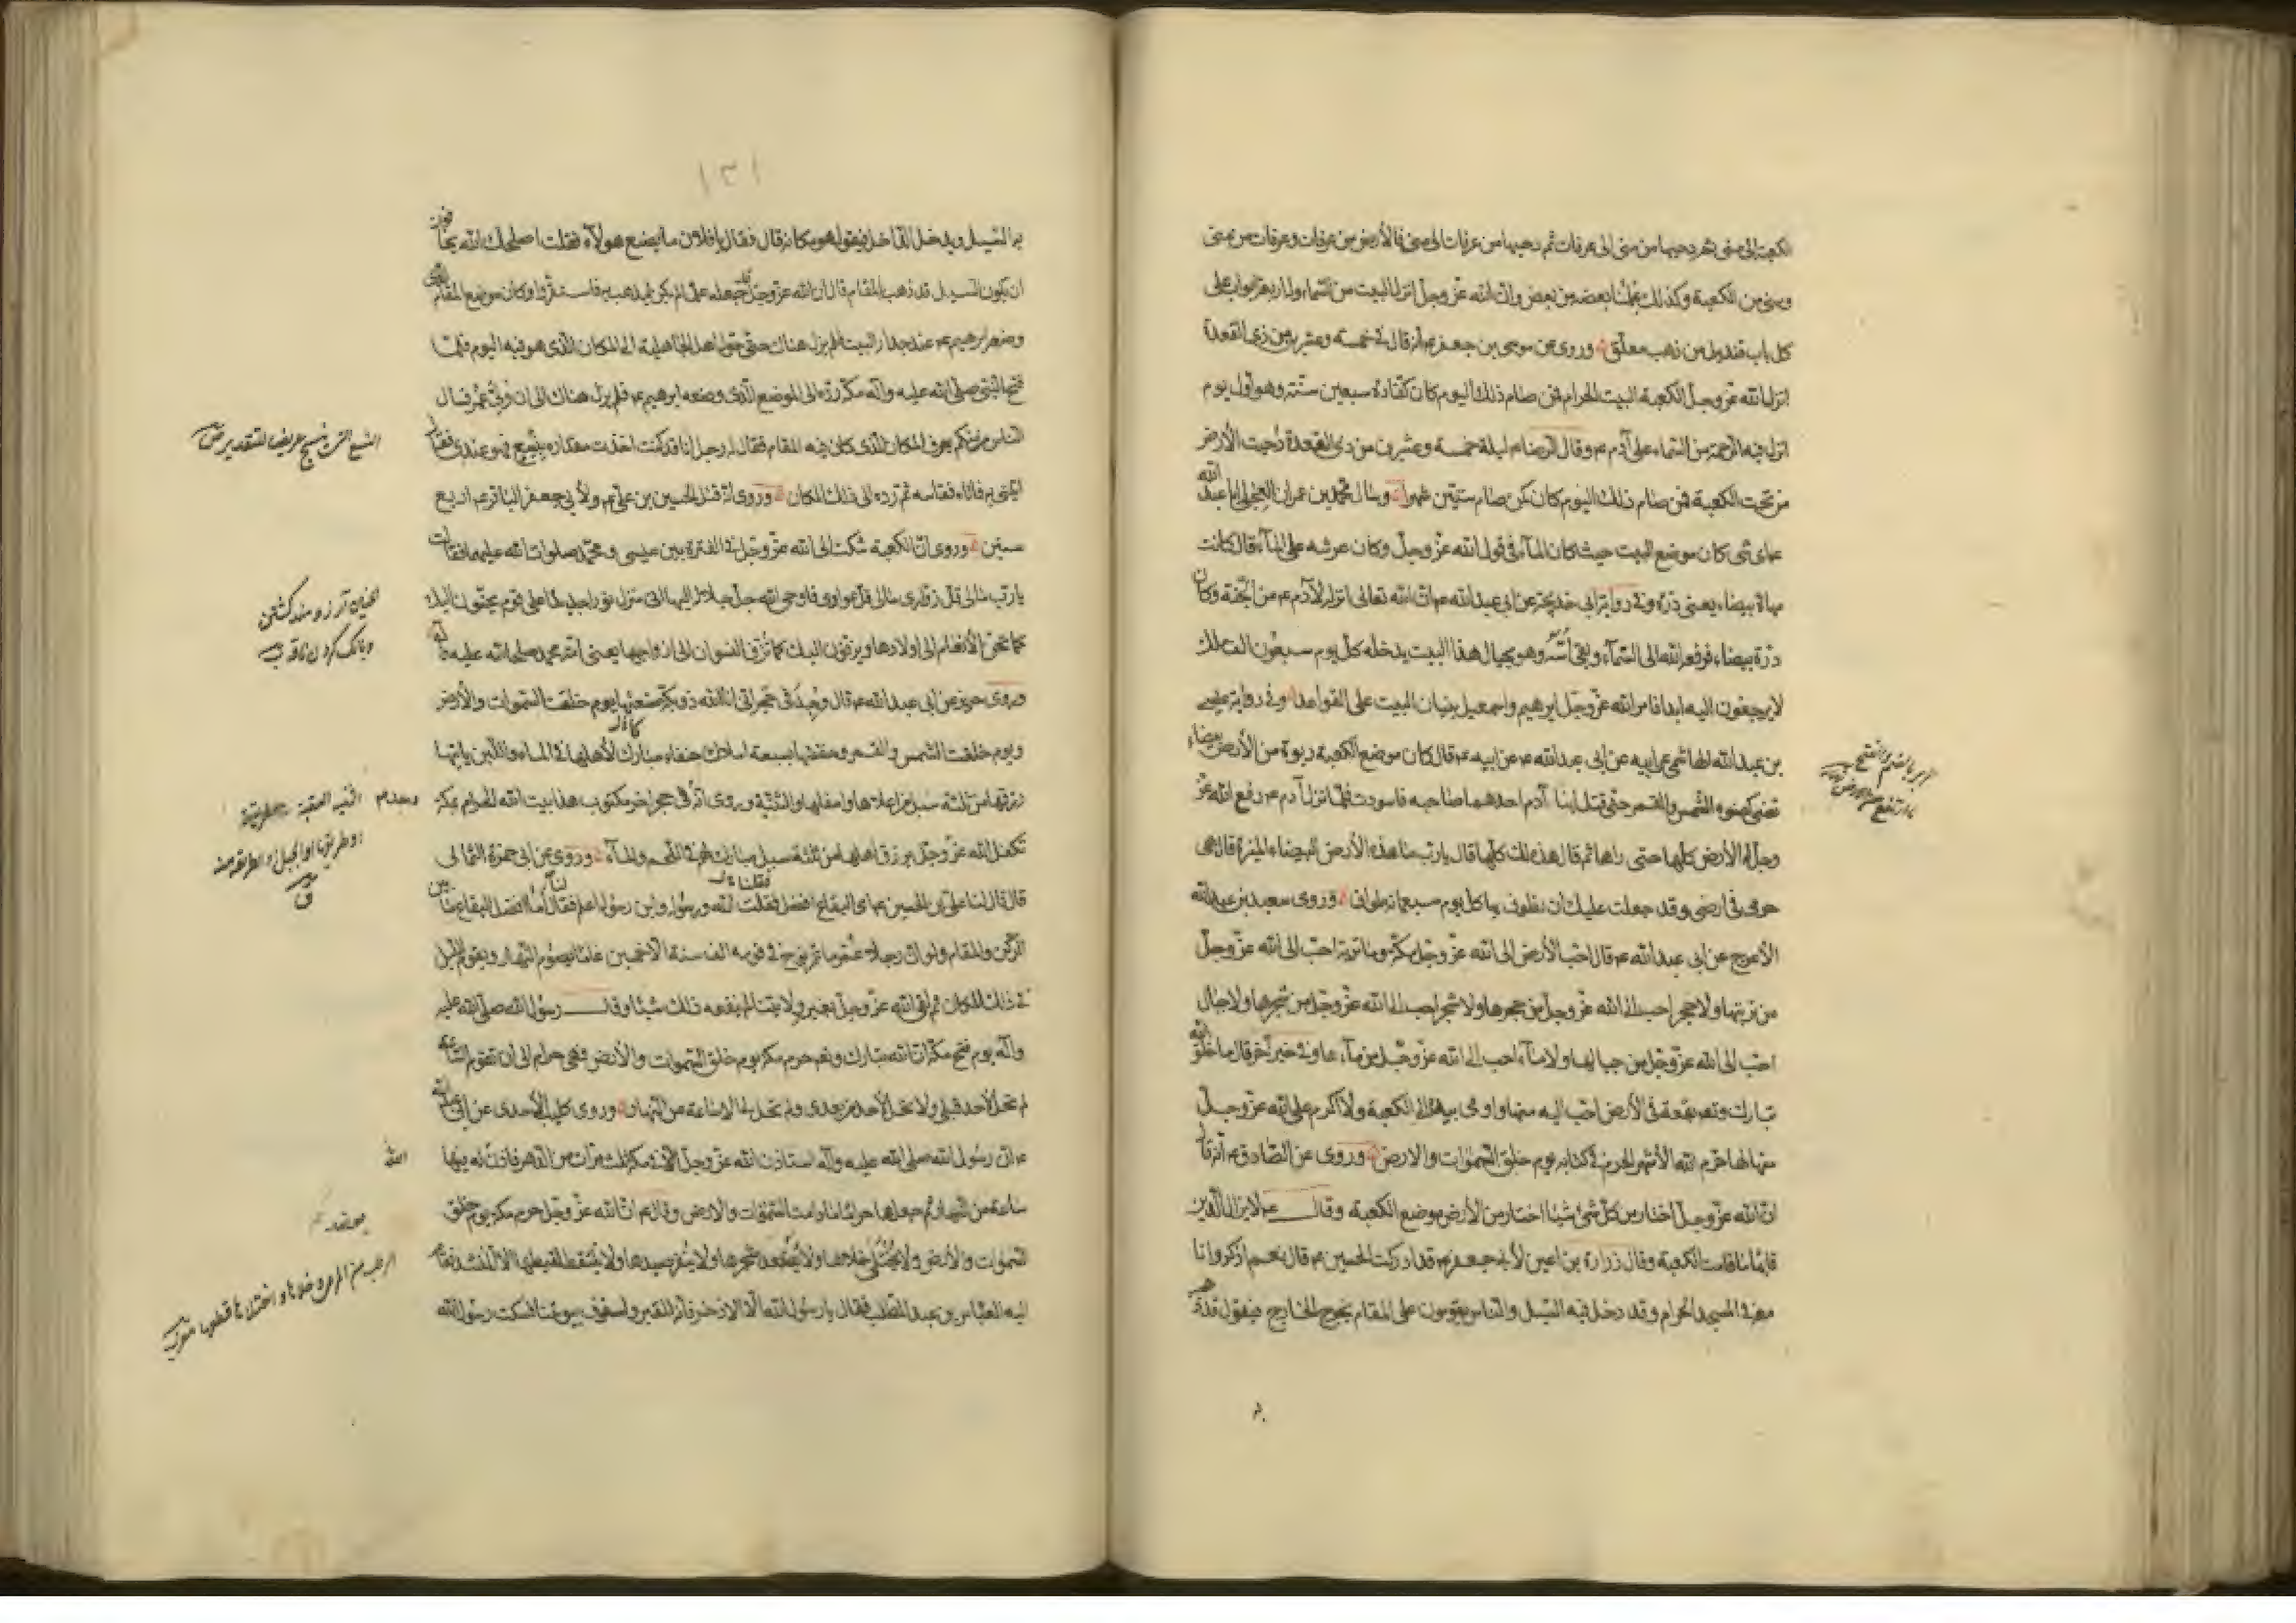 الكعبة الى منى ثم دحيها من منى الى عرفات ثم دحيها من عرفات الى منى فالأرض من عرفات وعرفات من منى
ومنى من الكعبة وكذلك علمنا بعضه من بعض وان الله عز وجل انزل البيت من السماء وله اربعة ابواب على
كل باب قنديل من ذهب معلق وروى عن موسى بن جعفر ع انه قال فى خمسة وعشرين من ذى القعدة
انزل الله عز وجل الكعبة البيت الحرام فمن صام ذلك اليوم كان كفارة سبعين سنة وهو اول يوم
انزل فيه الرحمة من السماء على آدم ع وقال الرضا ع ليلة خمسة وعشرين من ذى القعدة دحيت الأرض
من تحت الكعبة فمن صام ذلك اليوم كان كمن صام ستين شهرا وسال محمد بن عمران العجلى ابا عبد الله
ع اى شى كان موضع البيت حيث كان الماء فى قول الله عز وجل وكان عرشه على الماء قال كانت
مهاة بيضاء يعنى درة وفى رواية ابى خديجة عن ابى عبد الله ع ان الله تعالى انزله لآدم ع من الجنة وكان
درة بيضاء فرفعه الله الى السماء وبقى اسه وهو بحيال هذا البيت يدخله كل يوم سبعون الف ملك
لا يرجعون اليه ابدا فامر الله عز وجل ابرهيم واسمعيل ببنيان البيت على القواعد وفى رواية عيسى
بن عبد الله الهاشمى عن ابيه عن ابى عبد الله ع عن ابيه ع قال كان موضع الكعبة ربوة من الأرض بيضاء
تضئ كضوء الشمس والقمر حتى قتل ابنا آدم احدهما صاحبه فاسودت فلما نزل آدم ع رفع الله عز
وجل له الأرض كلها حتى راها ثم قال هذه لك كلها قال يا رب ما هذه الأرض البيضاء المنيرة قال هى
حرمى فى ارضى وقد جعلت عليك ان تطوف بها كل يوم سبعمائة طواف وروى سعيد بن عبد الله
الأعرج عن ابى عبد الله ع قال احب الأرض الى الله عز وجل مكة وما تربة احب الى الله عز وجل
من تربتها ولا حجر احب الى الله عز وجل من حجرها ولا شجر احب الى الله عز وجل من شجرها ولا جبال
احب الى الله عز وجل من جبالها ولا ماء احب الى الله عز وجل من ماءها وفى خبر آخر قال ما خلق الله
تبارك وتعالى بقعة فى الأرض احب اليه منها واومى بيده الى الكعبة ولا اكرم على الله عز وجل
منها لها حرم الله الأشهر الحرم فى كتابه يوم خلق السموات والارض وروى عن الصادق ع انه قال
ان الله عز وجل اختار من كل شئ شيئا اختار من الأرض موضع الكعبة وقال ع لا يزال الدين
قائما ما قامت الكعبة وقال زرارة بن اعين لأبى جعفر ع قد ادركت الحسين ع قال نعم اذكر وانا
معه فى المسجد الحرام وقد دخل فيه السيل والناس يقومون على المقام يخرج الخارج فيقول قد ذهب
١٣١
به السيل ويدخل الداخل فيقول هو مكانه قال فقال يا فلان ما يصنع هولاء فقلت اصلحك الله يخافون
ان يكون السيل قد ذهب بالمقام قال ان الله عز وجل قد جعله علما لم يكن ليذهب به فاستقروا وكان موضع المقام الذى
وضعه ابرهيم ع عند جدار البيت فلم يزل هناك حتى حوله اهل الجاهلية الى المكان الذى هو فيه اليوم فلما
فتح النبى صلى الله عليه وآله مكة رده الى الموضع الذى وضعه ابرهيم ع فلم يزل هناك الى ان ولى عمر فسال
الناس من منكم يعرف المكان الذى كان فيه المقام فقال له رجل انا قد كنت اخذت مقداره بنسع فهو عندى فقال
ايتنى به فاتاه فقاسه ثم رده الى ذلك المكان وروى انه قتل الحسين بن على ع ولأبى جعفر الباقر ع اربع
سنين وروى ان الكعبة شكت الى الله عز وجل فى الفترة بين عيسى ومحمد صلوات الله عليهما فقالت
يا رب مالى قل زوارى مالى قل عوادى فاوحى الله جل جلاله اليها انى منزل نورا جديدا على قوم يحنون اليك
كما تحن الأنعام الى اولادها ويزفون اليك كما تزف النسوان الى ازواجها يعنى امة محمد صلى الله عليه وآله
وروى حريز عن ابى عبد الله ع قال وجد فى حجر انى انا الله ذو بكة صنعتها يوم خلقت السموات والأرض
ويوم خلقت الشمس والقمر وحففتها بسبعة املاك حنفاء مبارك لأهلها فى الماء واللبن ياتيها
رزقها من ثلثة سبل من اعلاها واسفلها والثنية وروى انه فى حجر آخر مكتوب هذا بيت الله الحرام بمكة
تكفل الله عز وجل برزق اهله من ثلثة سبل مبارك لهم فى اللحم والماء وروى عن ابى حمزة الثمالى
قال قال لنا على بن الحسين ع اى البقاع افضل فقلت الله ورسوله وابن رسوله اعلم فقال اما افضل البقاع ما بين
الركن والمقام ولو ان رجلا عمر ما عمر نوح فى قومه الف سنة الا خمسين عاما يصوم النهار ويقوم الليل
فى ذلك المكان ثم لقى الله عز وجل بغير ولايتنا لم ينفعه ذلك شيئا وقال رسول الله صلى الله عليه
وآله يوم فتح مكة ان الله تبارك وتعالى حرم مكة يوم خلق السموات والأرض فهى حرام الى ان تقوم الساعة
لم تحل لأحد قبلى ولا تحل لأحد من بعدى ولم تحل لى الا ساعة من النهار وروى كليب الأسدى عن ابى عبد الله
ع ان رسول الله صلى الله عليه وآله استاذن الله عز وجل فى مكة ثلث مرات من الدهر فاذن له فيها
ساعة من النهار ثم جعلها حراما ما دامت السموات والارض وقال ع ان الله عز وجل حرم مكة يوم خلق
السموات والأرض ولا يختلى خلاها ولا يعضد شجرها ولا ينفر صيدها ولا يلتقط لقطتها الا لمنشد فقام
اليه العباس بن عبد المطلب فقال يا رسول الله الا الاذخر فانه للقبر ولسقوف بيوتنا فسكت رسول الله